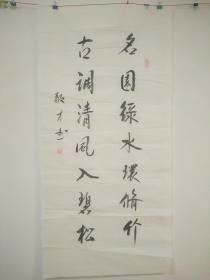 名园绿水环修竹
古调清风入碧松
敬才书